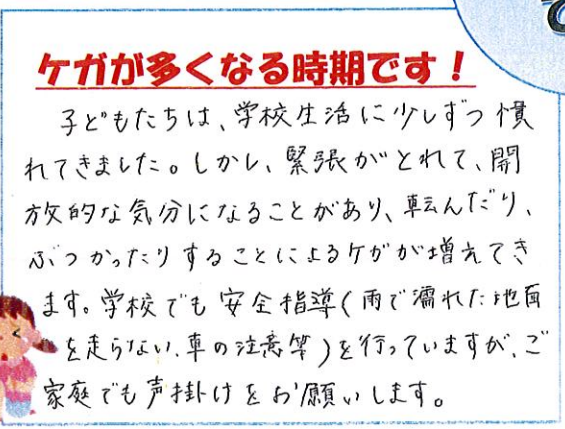 ケガが多くなる時期です！
子どもたちは、学校生活に少しずつ慣
れてきました。しかし、緊張がとれて、開
放的な気分になることがあり、転んだり、
ぶつかったりすることによるケガが増えてき
ます。学校でも安全指導(雨で濡れた地面
を走らない、車の注意等)を行っていますが、ご
家庭でも声掛けをお願いします。